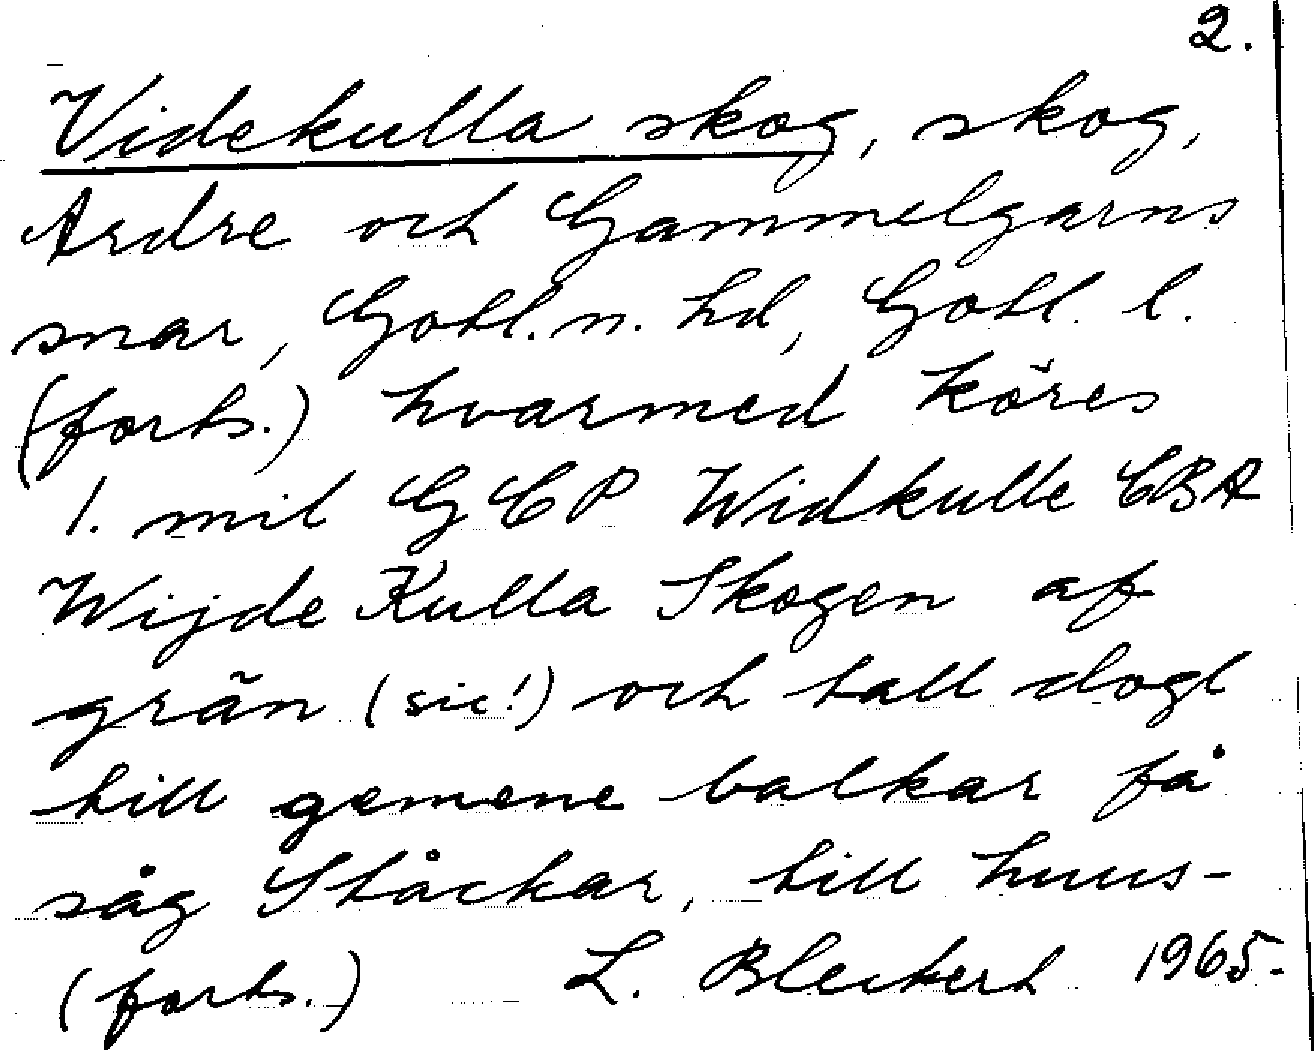 2.
Videkulla skog, skog,
Ardre och Gammelgarns
snar, Gotl. n. hd, Gotl. l.
(forts.) hvarmed köres
1. mil GCP Widkulle CBA
Wijde Kulla Skogen af
grän (sic!) och tall dogl
till gemene balkar få
såg Ståckar, till huus-
(forts.) L. Bleckert 1965.